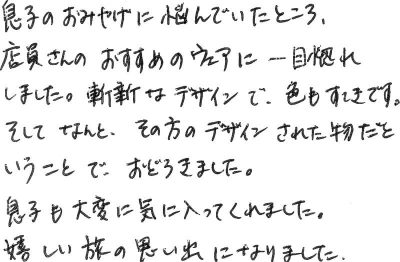 息子のおみやげに悩んでいたところ、
店員さんのおすすめのウェアに一目惚れ
しました。斬新なデザインで、色もすてきです。
そしてなんと、その方のデザインされた物だと
いうことで、おどろきました。
息子も大変に気に入ってくれました。
嬉しい旅の思い出になりました.